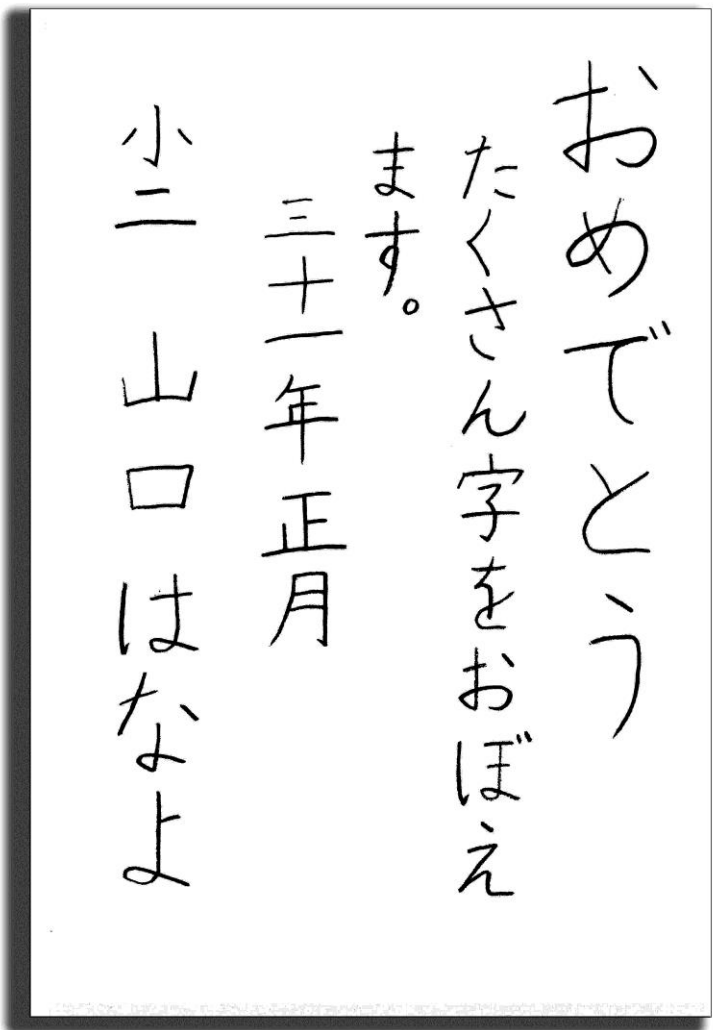 おめでとう
たくさん字をおぼえ
ます。
三十一年正月
小二 山口はなよ